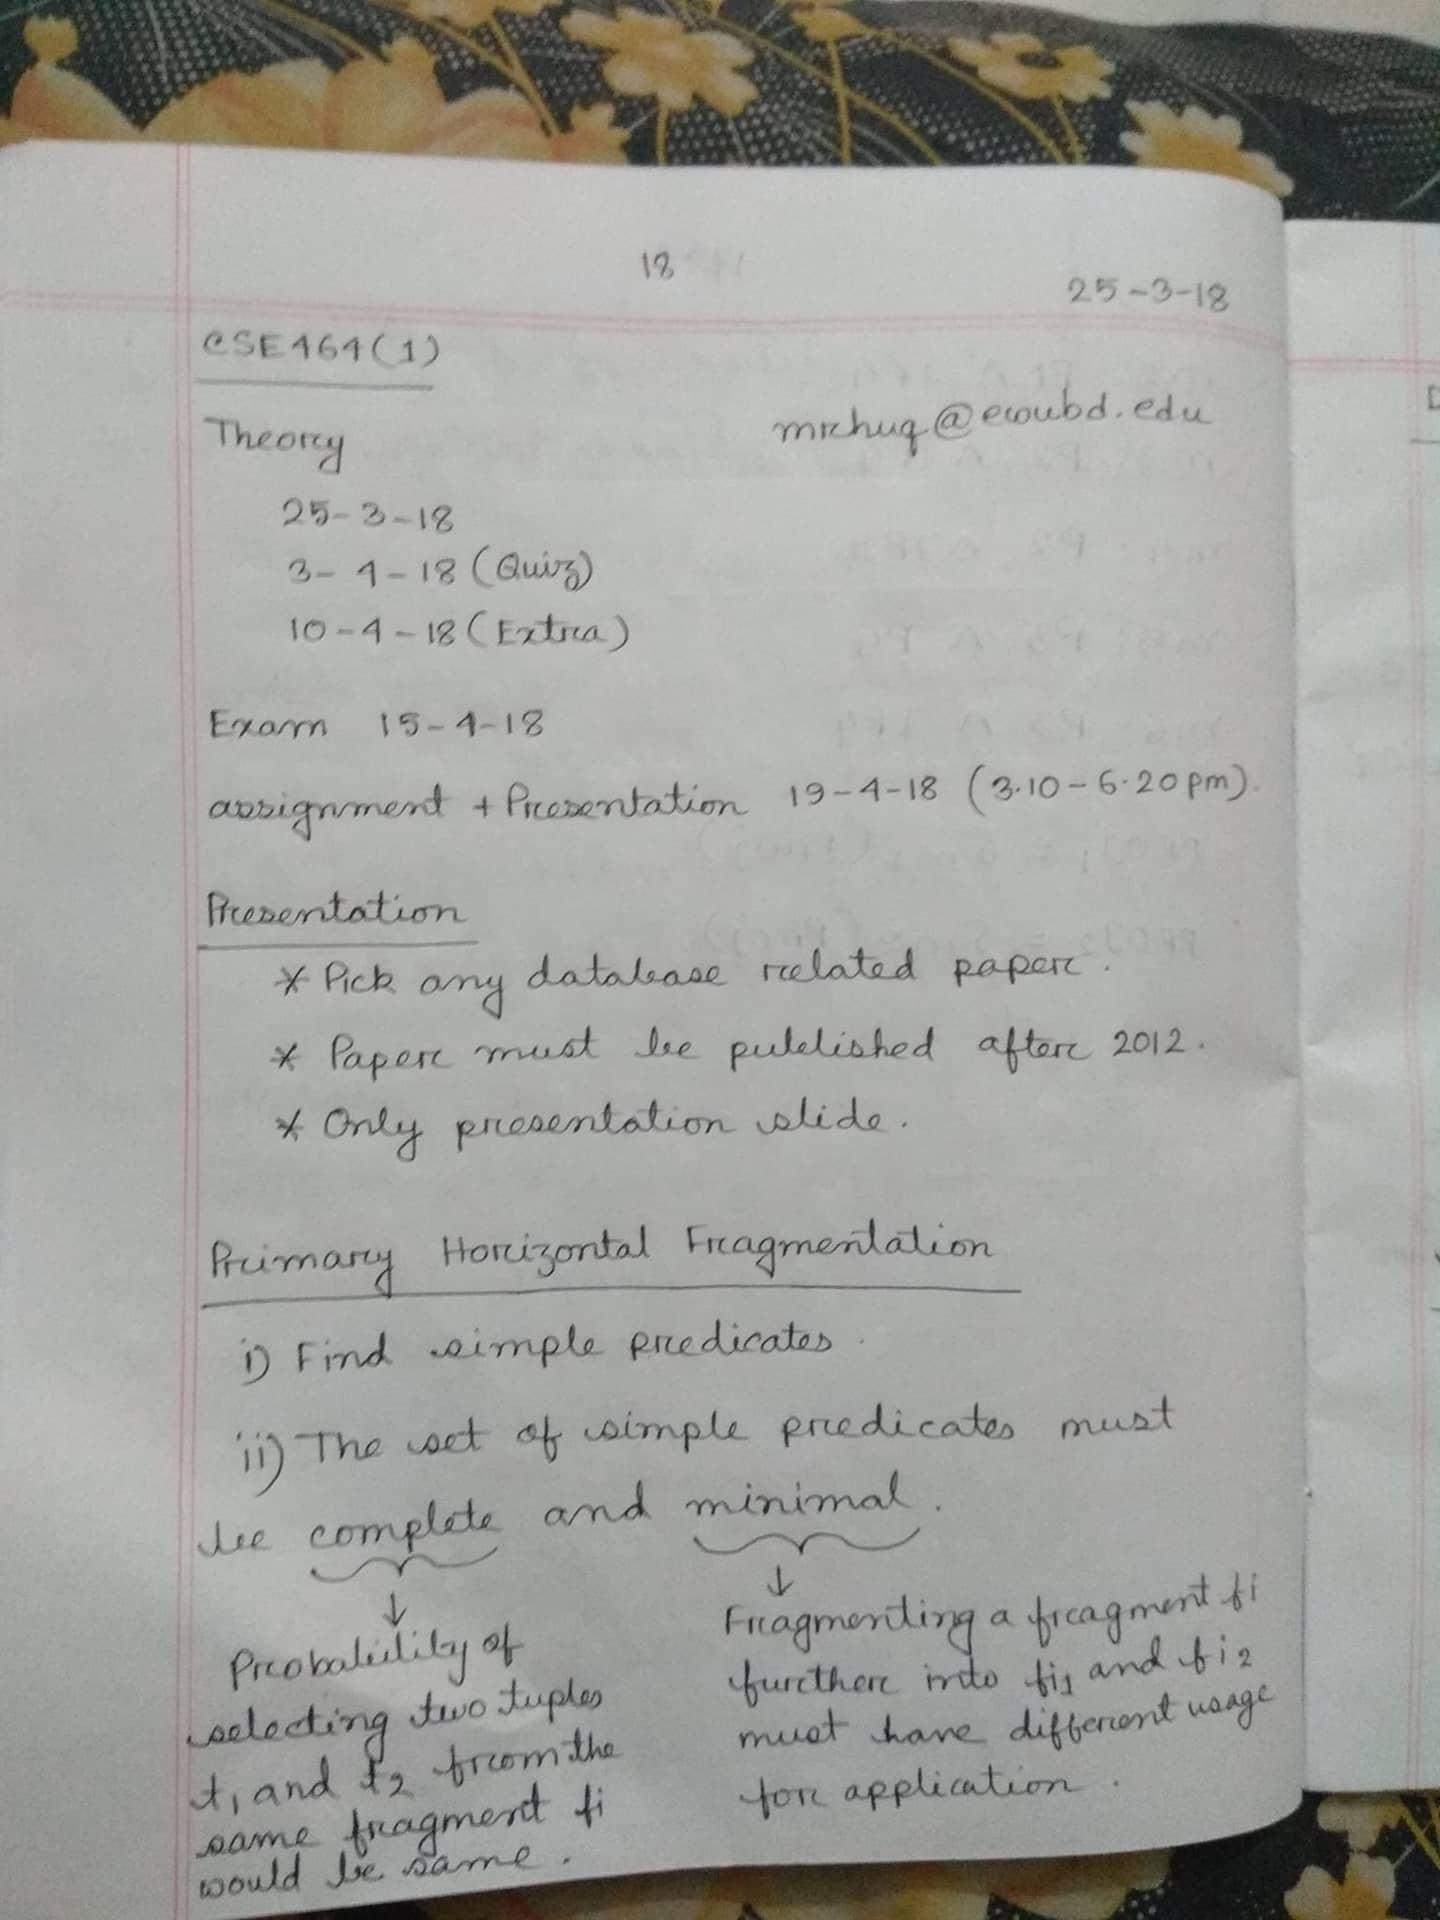 18
25-3-18
CSE464(1)
Theory
mrhuq@ewubd.edu
25-3-18
3-4-18 (Quiz)
10-4-18 (Extra)
Exam 15-4-18
assignment + Presentation 19-4-18 (3.10-6.20 pm).
Presentation
* Pick any database related paper.
* Paper must be published after 2012.
* Only presentation slide.
Primary Horizontal Fragmentation
i) Find simple predicates.
ii) The set of simple predicates must
be complete and minimal.
↓
Probability of
selecting two tuples
t1 and t2 from the
same fragment fi
would be same.
↓
Fragmenting a fragment fi
further into fi1 and fi2
must have different usage
for application.